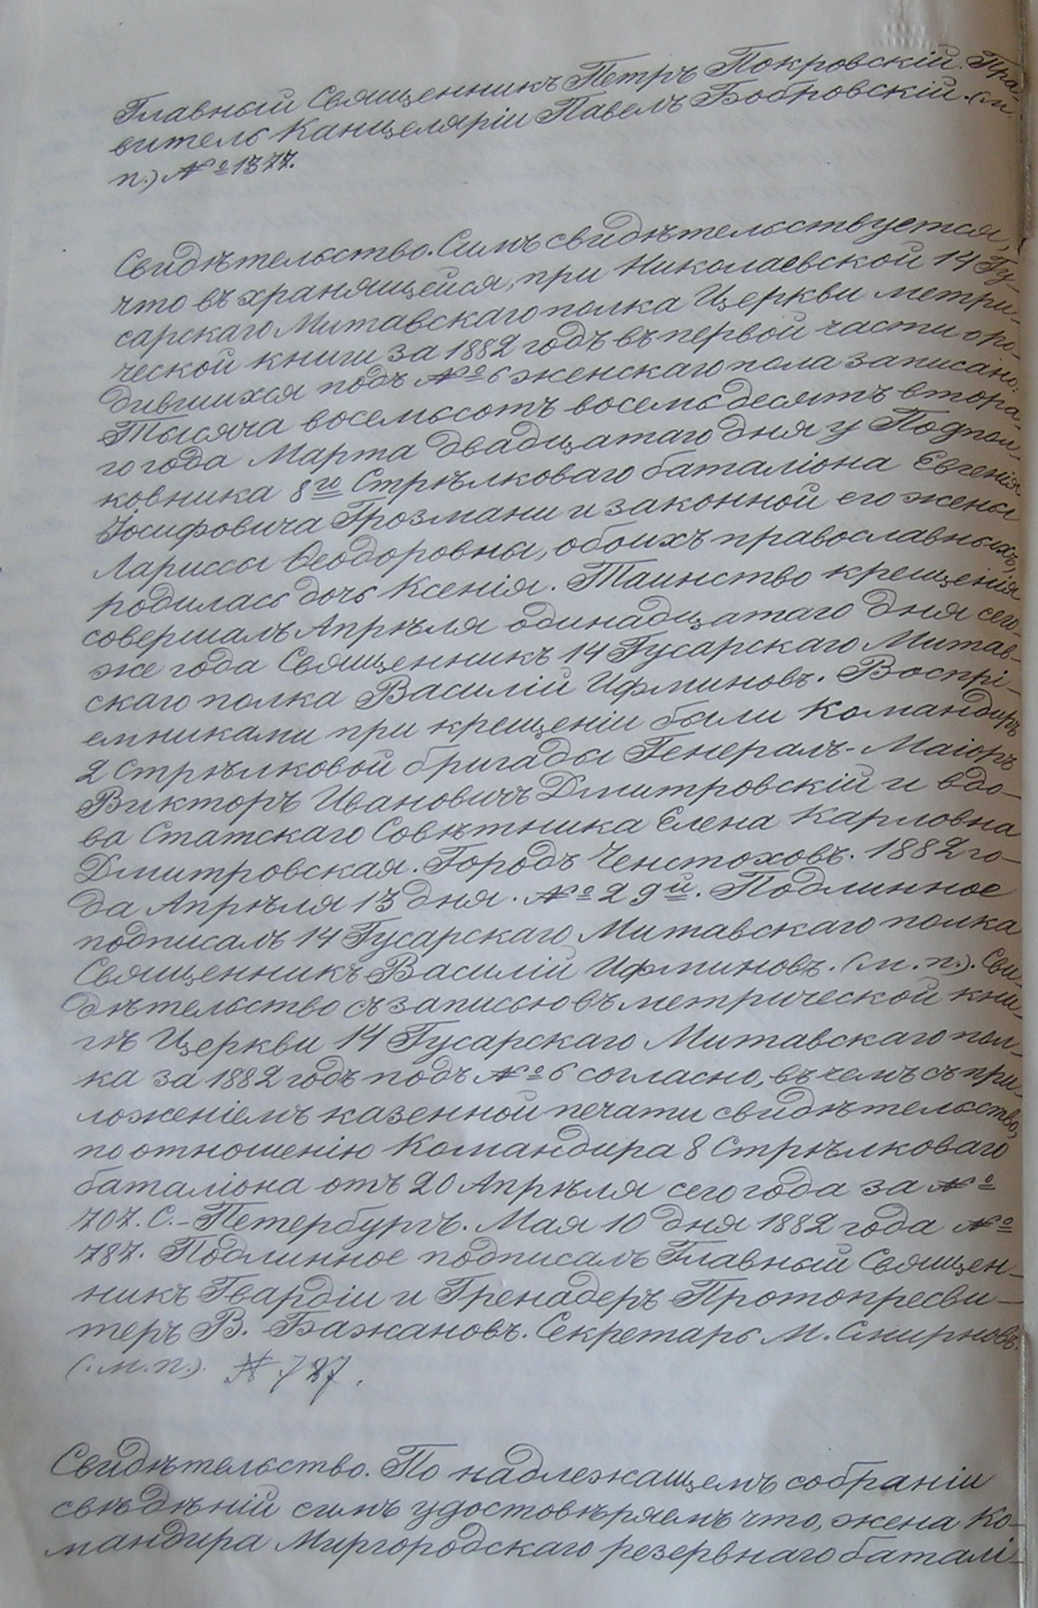 Главный Священникъ Петръ Покровскій. Пра-
витель Канцеляріи Павелъ Бобровскій. (м.
п.) № 1377.
Свидѣтельство. Симъ свидѣтельствуется,
что въ хранящейся, при Николаевской 14 Гу-
сарскаго Митавскаго полка Церкви метри-
ческой книги за 1882 годъ въ первой части о ро-
дившихся подъ № 6 женскаго пола записано:
Тысяча восемьсотъ восемьдесятъ втора-
го года Марта двадцатаго дня у Подпол-
ковника 8го Стрѣлковаго баталіона Евгенія
Іосифовича Грозмани и законной его жены
Лариссы Ѳеодоровны, обоихъ православныхъ,
родилась дочь Ксенія. Таинство крещенія
совершалъ Апрѣля одинадцатаго дня сего-
же года Священникъ 14 Гусарскаго Митав-
скаго полка Василій Ифминовъ. Воспрі-
емниками при крещеніи были Командиръ
2 Стрѣлковой бригады Генералъ-Маіоръ
Викторъ Ивановичъ Дмитровскій и вдо-
ва Статскаго Совѣтника Елена Карловна
Дмитровская. Городъ Ченстоховъ. 1882 го-
да Апрѣля 13 дня. № 29й. Подлинное
подписалъ 14 Гусарскаго Митавскаго полка
Священникъ Василій Ифминовъ. (м.п.). Сви-
дѣтельство съ записью въ метрической кни-
гѣ Церкви 14 Гусарскаго Митавскаго пол-
ка за 1882 годъ подъ № 6 согласно, въ чемъ съ при-
ложеніемъ казенной печати свидѣтельство,
по отношенію Командира 8 Стрѣлковаго
баталіона отъ 20 Апрѣля сего года за №
707. С.-Петербургъ. Мая 10 дня 1882 года №
787. Подлинное подписалъ Главный Священ-
никъ Гвардіи и Гренадеръ Протопресви-
теръ В. Бажановъ. Секретарь М. Смирновъ.
(м.п.). № 787.
Свидѣтельство. По надлежащемъ собраніи
свѣдѣній симъ удостовѣряемъ что, жена Ко-
мандира Миргородскаго резервнаго баталі-